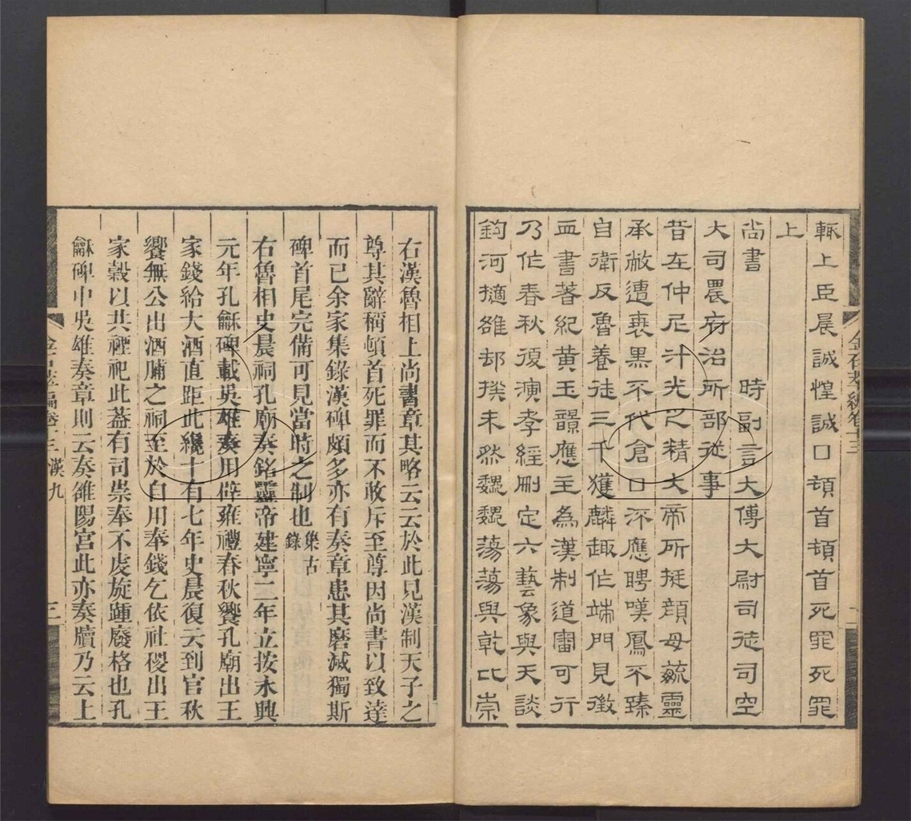 輒上臣晨誠惶誠口頓首頓首死罪死罪
上
尚書
時副言大傅大尉司徒司空
大司農府治所部從事
昔在仲尼汁光之精大帝所挺顏母毓靈
承敝遭衰黑不代倉口不應聘嘆鳳不臻
自衛反魯養徒三千獲麟趣作端門見徵
血書著紀黃玉韻應主為漢制道審可行
乃作春秋復演孝經刪定六藝象與天談
鈎河擿雒却揆未然魏魏蕩蕩與乾比崇
金石萃編卷十三
右漢魯相上尚書章其略云云於此見漢制天子之
尊其辭稱頓首死罪而不敢斥至尊因尚書以致達
而已余家集錄漢碑頗多亦有奏章患其磨滅獨斯
碑首尾完備可見當時之制也集古錄
右魯相史晨祠孔廟奏銘靈帝建寧二年立按永興
元年孔龢碑載吳雄奏用辟雍禮春秋饗孔廟出王
家錢給大酒直距此纔十有七年史晨復云到官秋
饗無公出酒脯之祠至於自用奉錢乞依社稷出王
家穀以共禋祀此葢有司崇奉不虔旋踵廢格也孔
龢碑中吳雄奏章則云奏雒陽宮此亦奏牘乃云上
金石萃編卷十三 漢九
三